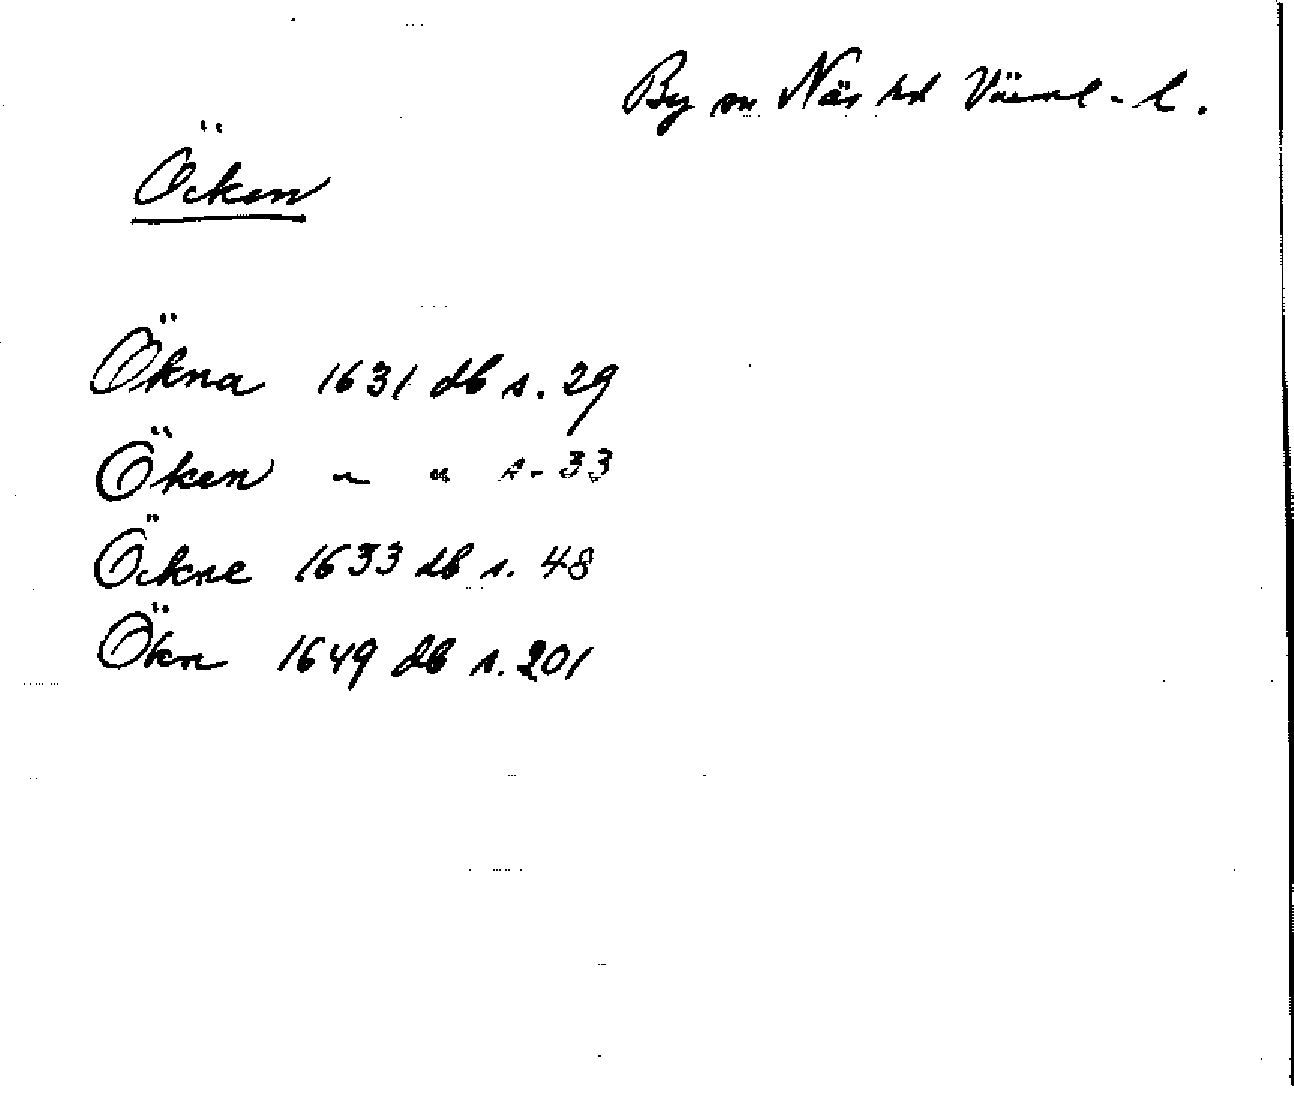 By sn Näs hd Värml - l.
Öcken
Ökna 1631 db s. 29
Öken " " s. 33
Öckne 1633 db s. 48
Ökn 1649 db s. 201